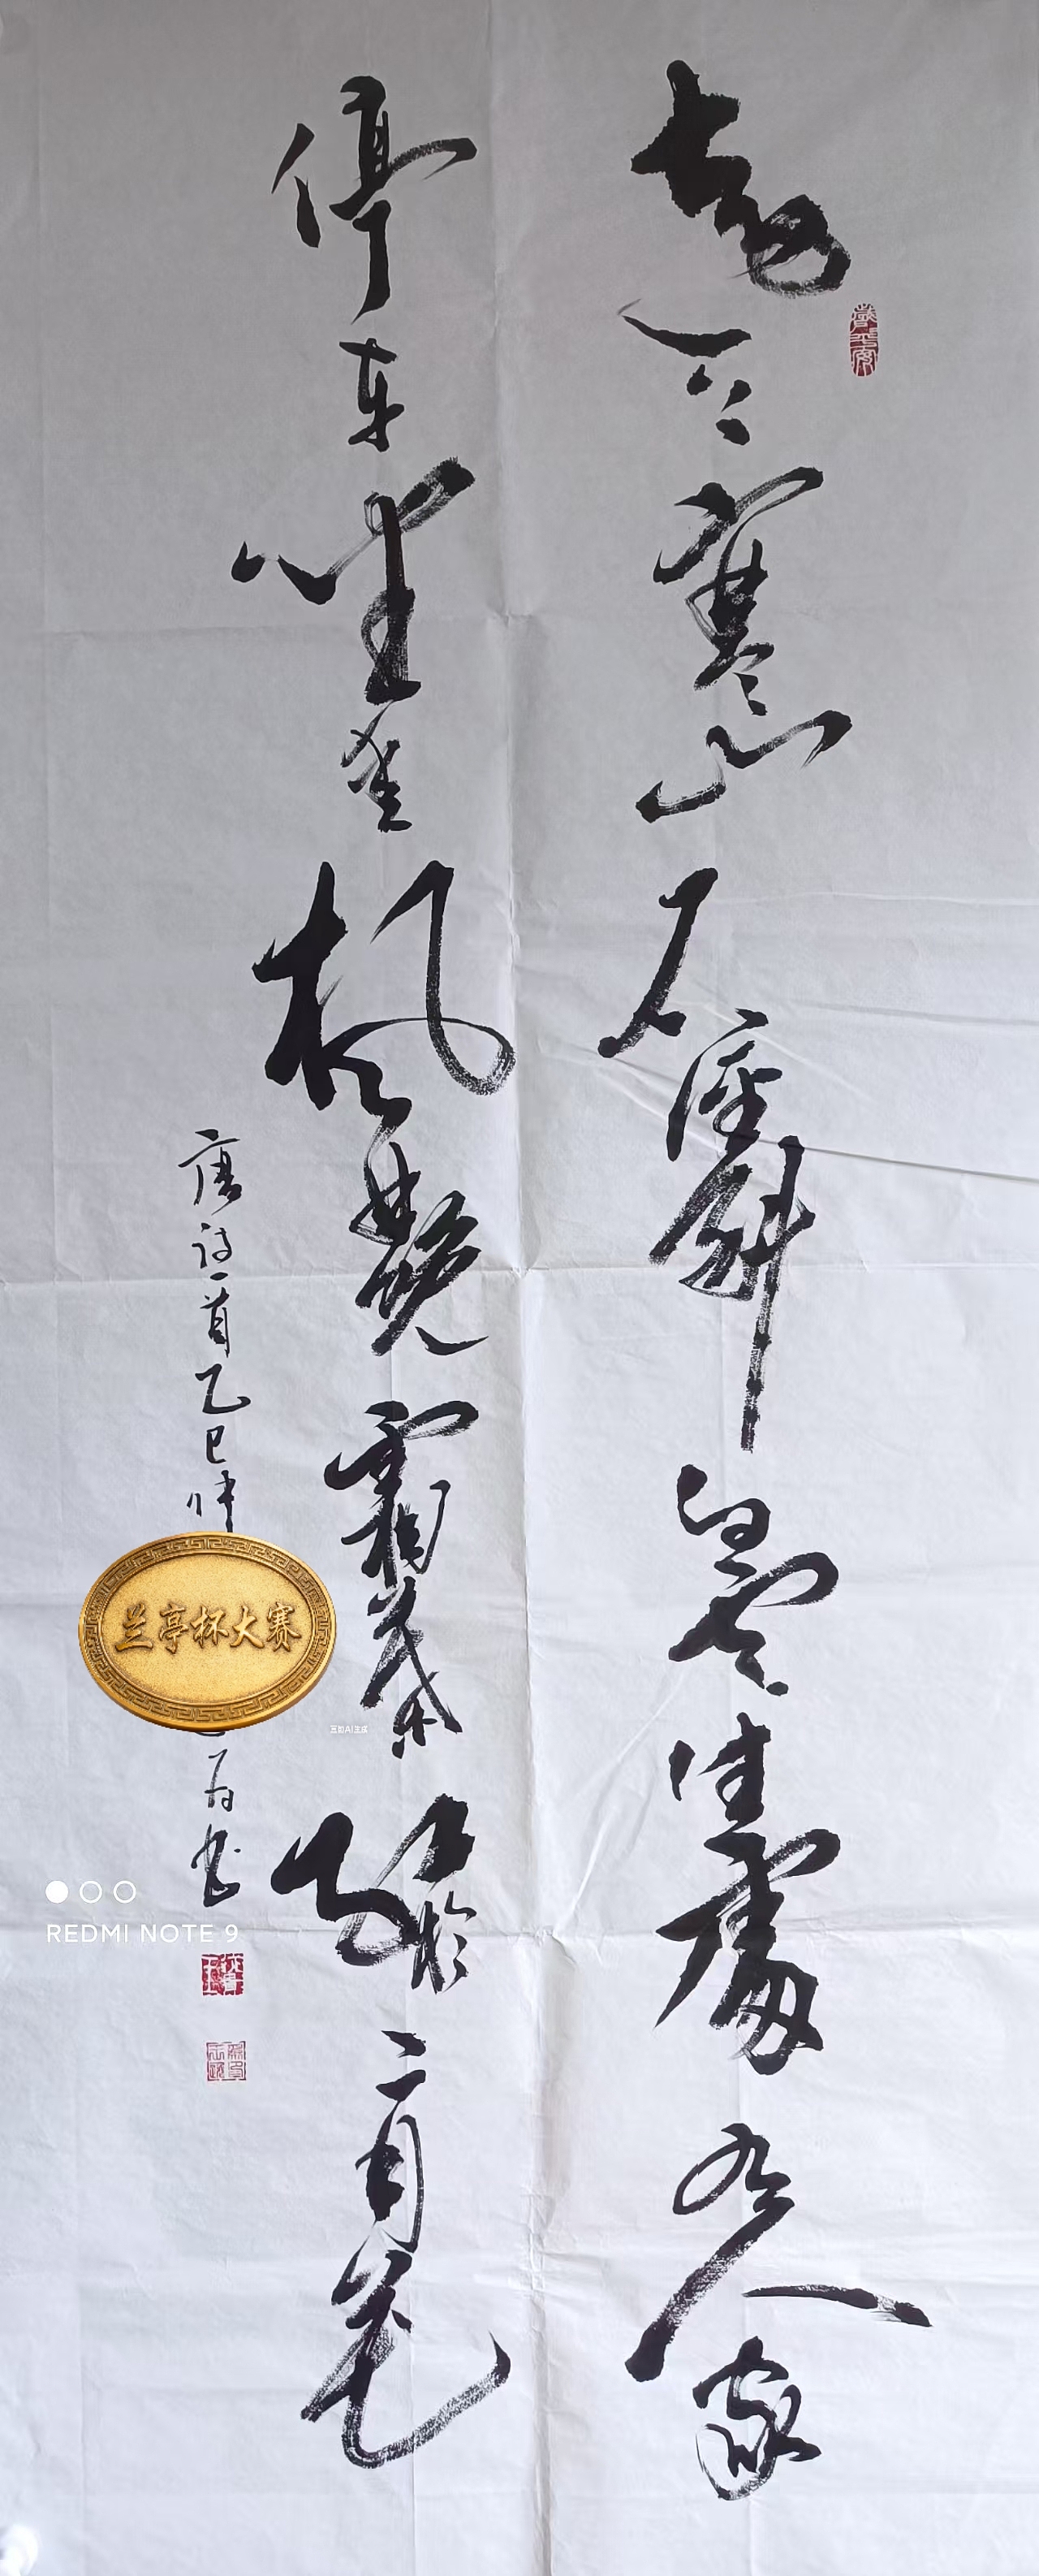 远上寒山石径斜白云生處有人家
停车坐爱枫林晚霜葉红於二月花
唐诗一首乙巳仲
书
兰亭杯大赛
豆包AI生成
REDMI NOTE 9